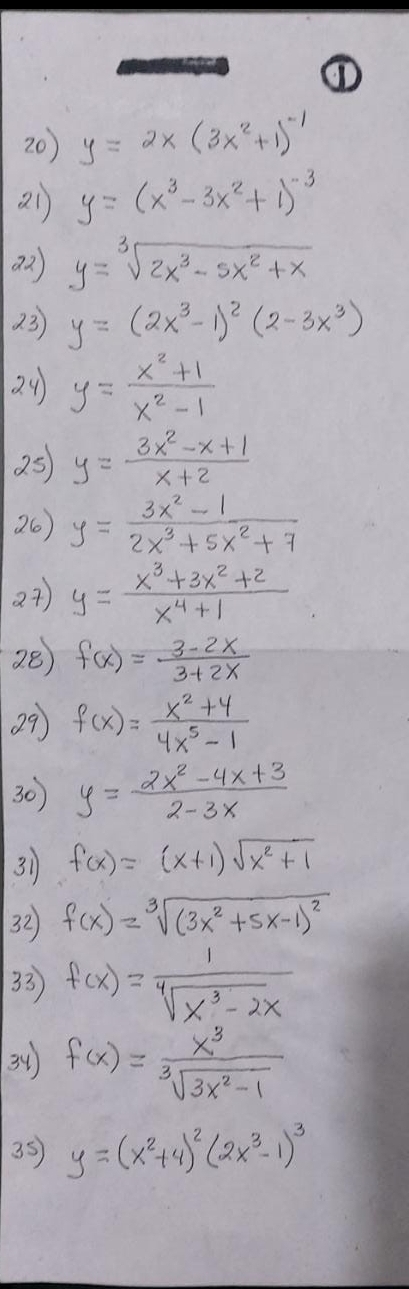 ①
20) y = 2x (3x²+1)⁻¹
21) y = (x³-3x²+1)⁻³
22) y = ∛(2x³-5x²+x)
23) y = (2x³-1)² (2-3x³)
24) y = (x²+1)/(x²-1)
25) y = (3x²-x+1)/(x+2)
26) y = (3x²-1)/(2x³+5x²+7)
27) y = (x³+3x²+2)/(x⁴+1)
28) f(x) = (3-2x)/(3+2x)
29) f(x) = (x²+4)/(4x⁵-1)
30) y = (2x²-4x+3)/(2-3x)
31) f(x) = (x+1)√(x²+1)
32) f(x) = ∛((3x²+5x-1)²)
33) f(x) = 1/∜(x³-2x)
34) f(x) = x³/∛(3x²-1)
35) y = (x²+4)² (2x³-1)³